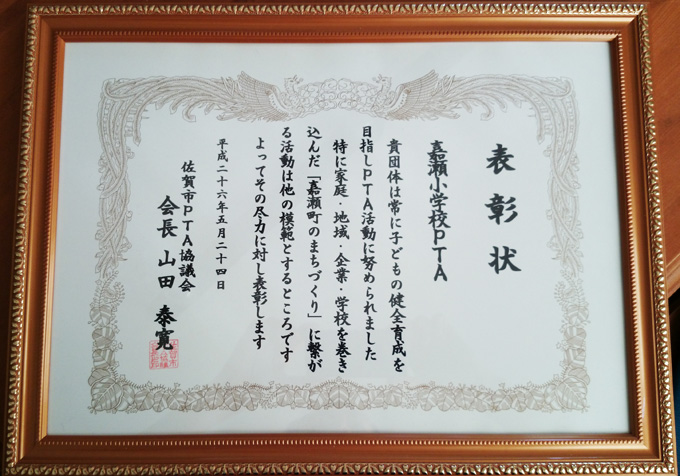 表彰状
嘉瀬小学校PTA
貴団体は常に子どもの健全育成を
目指しPTA活動に努められました
特に家庭・地域・企業・学校を巻き
込んだ「嘉瀬町のまちづくり」に繋が
る活動は他の模範とするところです
よってその尽力に対し表彰します
平成二十六年五月二十四日
佐賀市PTA協議会
会長 山田 泰寛